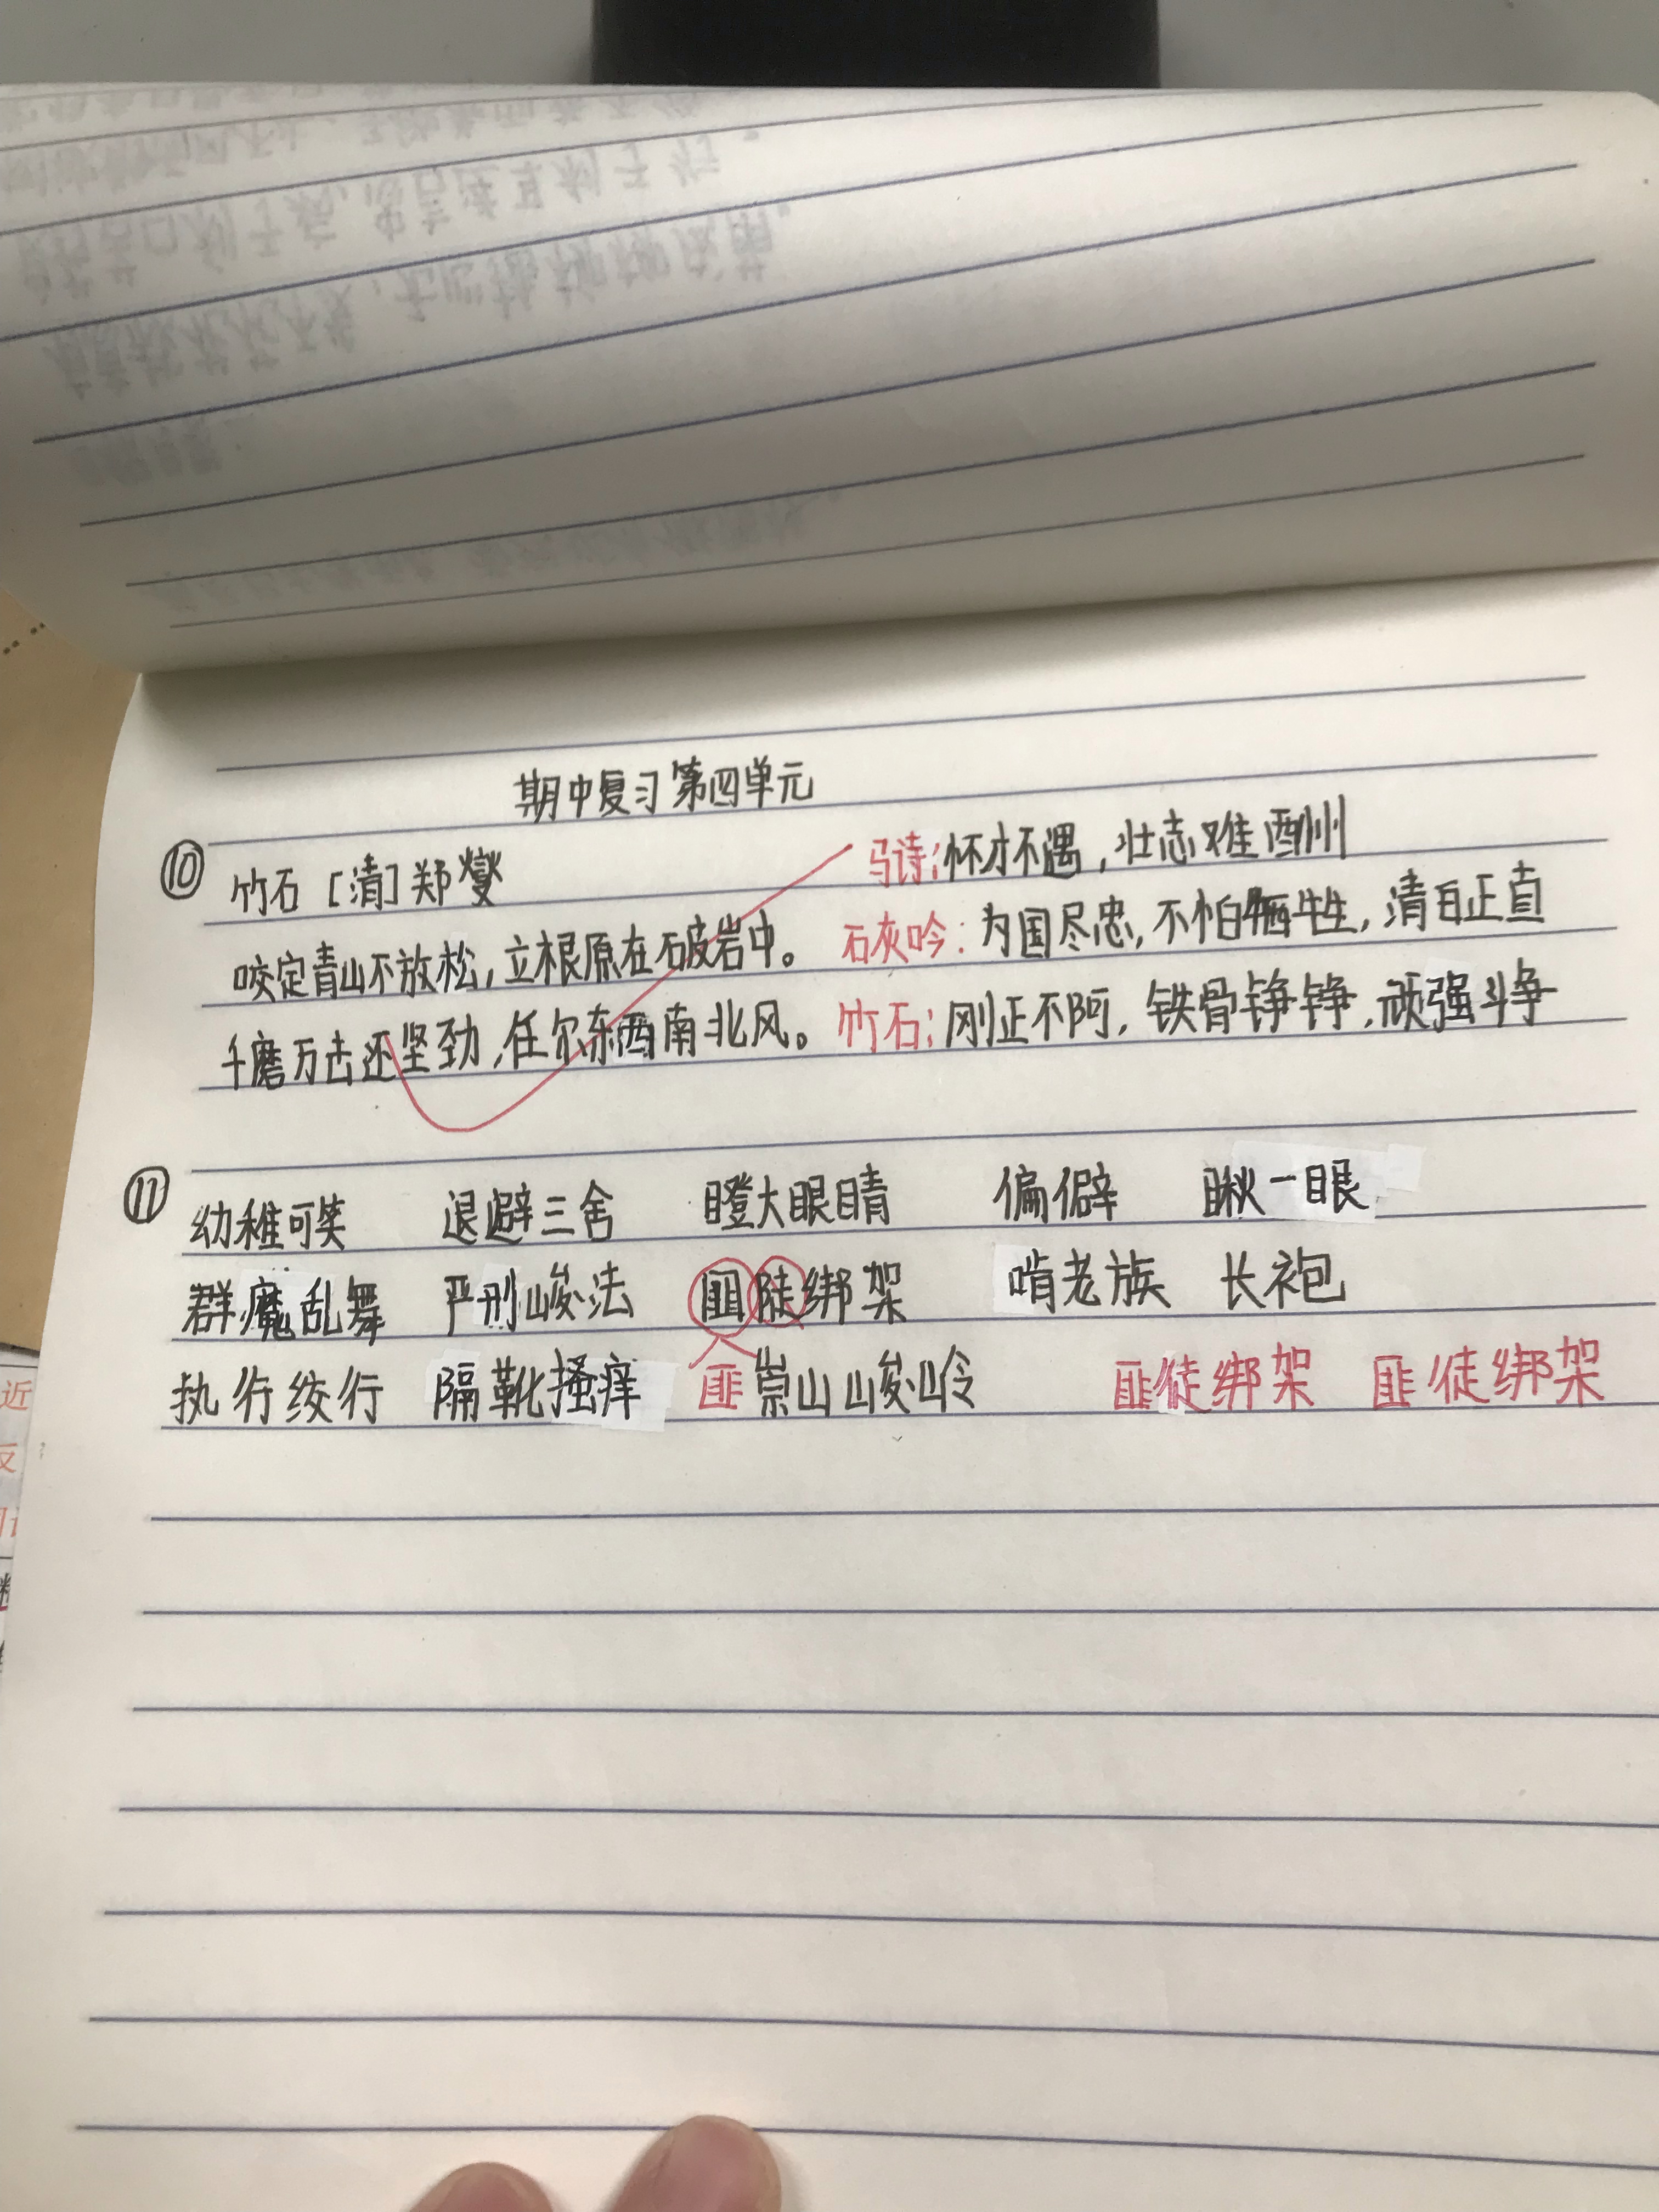 期中复习第四单元
⑩ 竹石 [清] 郑燮
马诗:怀才不遇,壮志难酬
咬定青山不放松,立根原在破岩中。
石灰吟:为国尽忠,不怕牺牲,清白正直
千磨万击还坚劲,任尔东西南北风。
竹石:刚正不阿,铁骨铮铮,顽强斗争
⑪ 幼稚可笑 退避三舍 瞪大眼睛 偏僻 瞅一眼
群魔乱舞 严刑峻法 绑架 啃老族 长袍
执行绞行 隔靴搔痒 匪 崇山峻岭 匪徒绑架 匪徒绑架